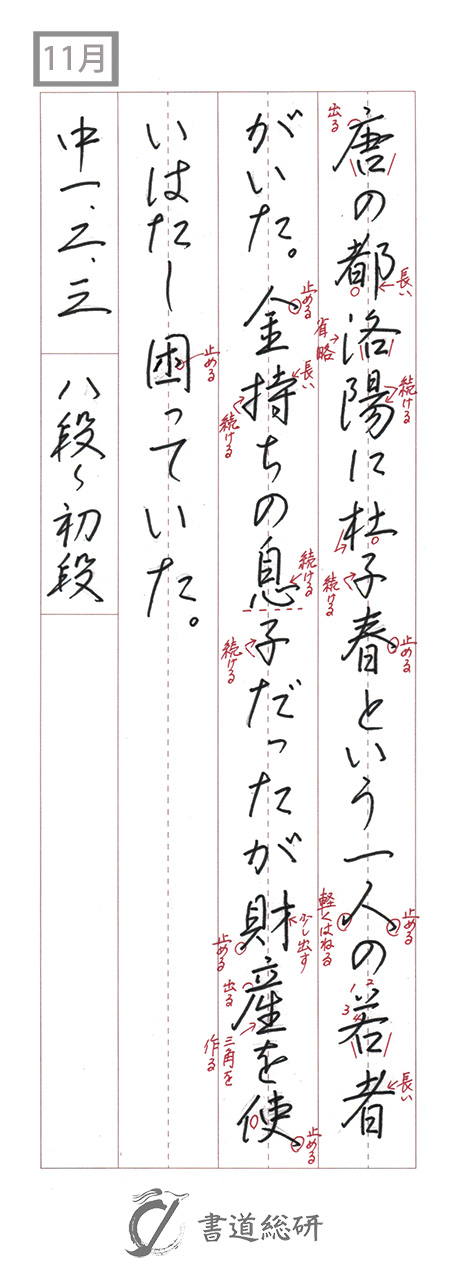 11月
唐の都洛陽に杜子春という一人の若者
出る
長い
省略
続ける
続ける
止める
止める
軽くはねる
1 2
3 4
長い
がいた。金持ちの息子だったが財産を使
止める
長い
続ける
続ける
続ける
少し出す
止める
出る
三角を作る
止める
いはたし困っていた。
止める
中一、二、三
八段〜初段
書道総研